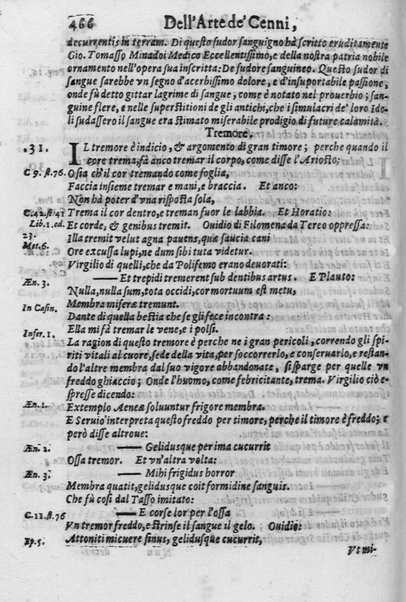 466 Dell'Arte de' Cenni,
decurrentis in terram. Di questo sudor sanguigno hà scritto eruditamente
Gio. Tomasso Minadoi Medico Eccellentissimo, e della nostra patria nobile
ornamento nell'opera sua inscritta: De sudore sanguineo. Questo sudor di
sangue sarebbe vn segno d'acerbissimo dolore, e d'insuportabile passione,
onde fù detto gittar lagrime di sangue, come è notato nel prouerbio; san-
guine flere, e nelle superstitioni de gli antichi, che i simulacri de' loro ido-
li sudassero il sangue era stimato miserabile prodigio di future calamità.
Tremore.
.31. IL tremore è indicio, & argomento di gran timore; perche quando il
core trema, fà anco tremar il corpo, come disse l'Ariosto;
C 9. st. 76. Osia ch'il cor tremando come foglia,
Faccia insieme tremar e mani, e braccia. Et anco:
Non hà poter d'vna risposta sola,
C. 42. st. 41 Trema il cor dentro, e treman fuor le labbia. Et Horatio:
Lib. 1. ed. 23. Et corde, & genibus tremit. Ouidio di Filomena da Tereo oppressa:
Illa tremit velut agna pauens, quæ saucia cani
Met. 6. Ore excussa lupi, ne dum sibi tuta videtur.
Virgilio di quelli, che da Polifemo erano deuorati:
Æn. 3. — Et trepidi tremerent sub dentibus artus. E Plauto:
Nulla, nulla sum, tota occidi, cor mortuum est metu,
In Casin. Membra miseræ tremunt.
Dante di quella bestia che se gli fece incontra:
Infer. 1. Ella mi fà tremar le vene, e i polsi.
La ragion di questo tremore è perche ne i gran pericoli, correndo gli spi-
riti vitali al cuore, sede della vita, per soccorrerlo, e conseruarlo, e restan-
do l'altre membra dal suo vigore abbandonate, si sparge per quelle vn
freddo ghiaccio; Onde l'huomo, come febricitante, trema. Virgilio ciò e-
spresse dicendo:
Æn. 1. Extemplo Aeneæ soluuntur frigore membra.
E Seruio interpreta questo freddo per timore, perche il timore è freddo; e
però disse altroue:
Æn. 2. — Gelidusque per ima cucurrit
Ossa tremor. Et vn'altra volta:
Æn. 3. — Mihi frigidus horror
Membra quatit, gelidusque coit formidine sanguis.
Che fù così dal Tasso imitato:
— E corse lor per l'ossa
C. 11. st. 76 Vn tremor freddo, e strinse il sangue il gelo. Ouidio:
Ep. 5. Attoniti micuere sinus, gelidusque cucurrit,
Vt mi-